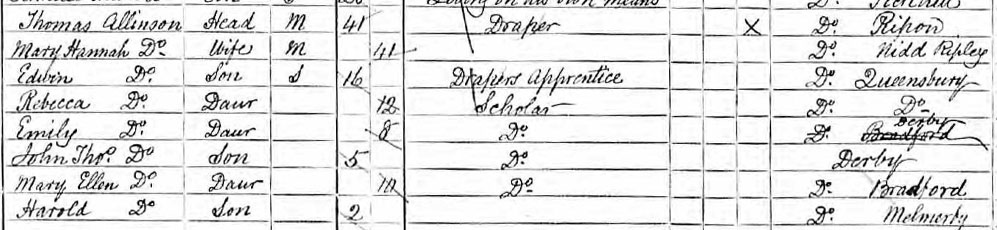 Living on his own means Do
Thomas Allinson Head M 41 Draper X Do Ripon
Mary Hannah Do Wife M 41 Do Nidd Ripley
Edwin Do Son S 16 Drapers Apprentice Do Queensbury
Rebecca Do Daur 12 Scholar Do Do
Emily Do Daur 8 Do Do Bradford Derby
John Thos. Do Son 5 Do Derby
Mary Ellen Do Daur Do Do Bradford
Harold Do Son 2 Do Melmerby